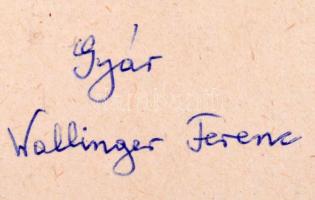 Gyár
Wallinger Ferenc